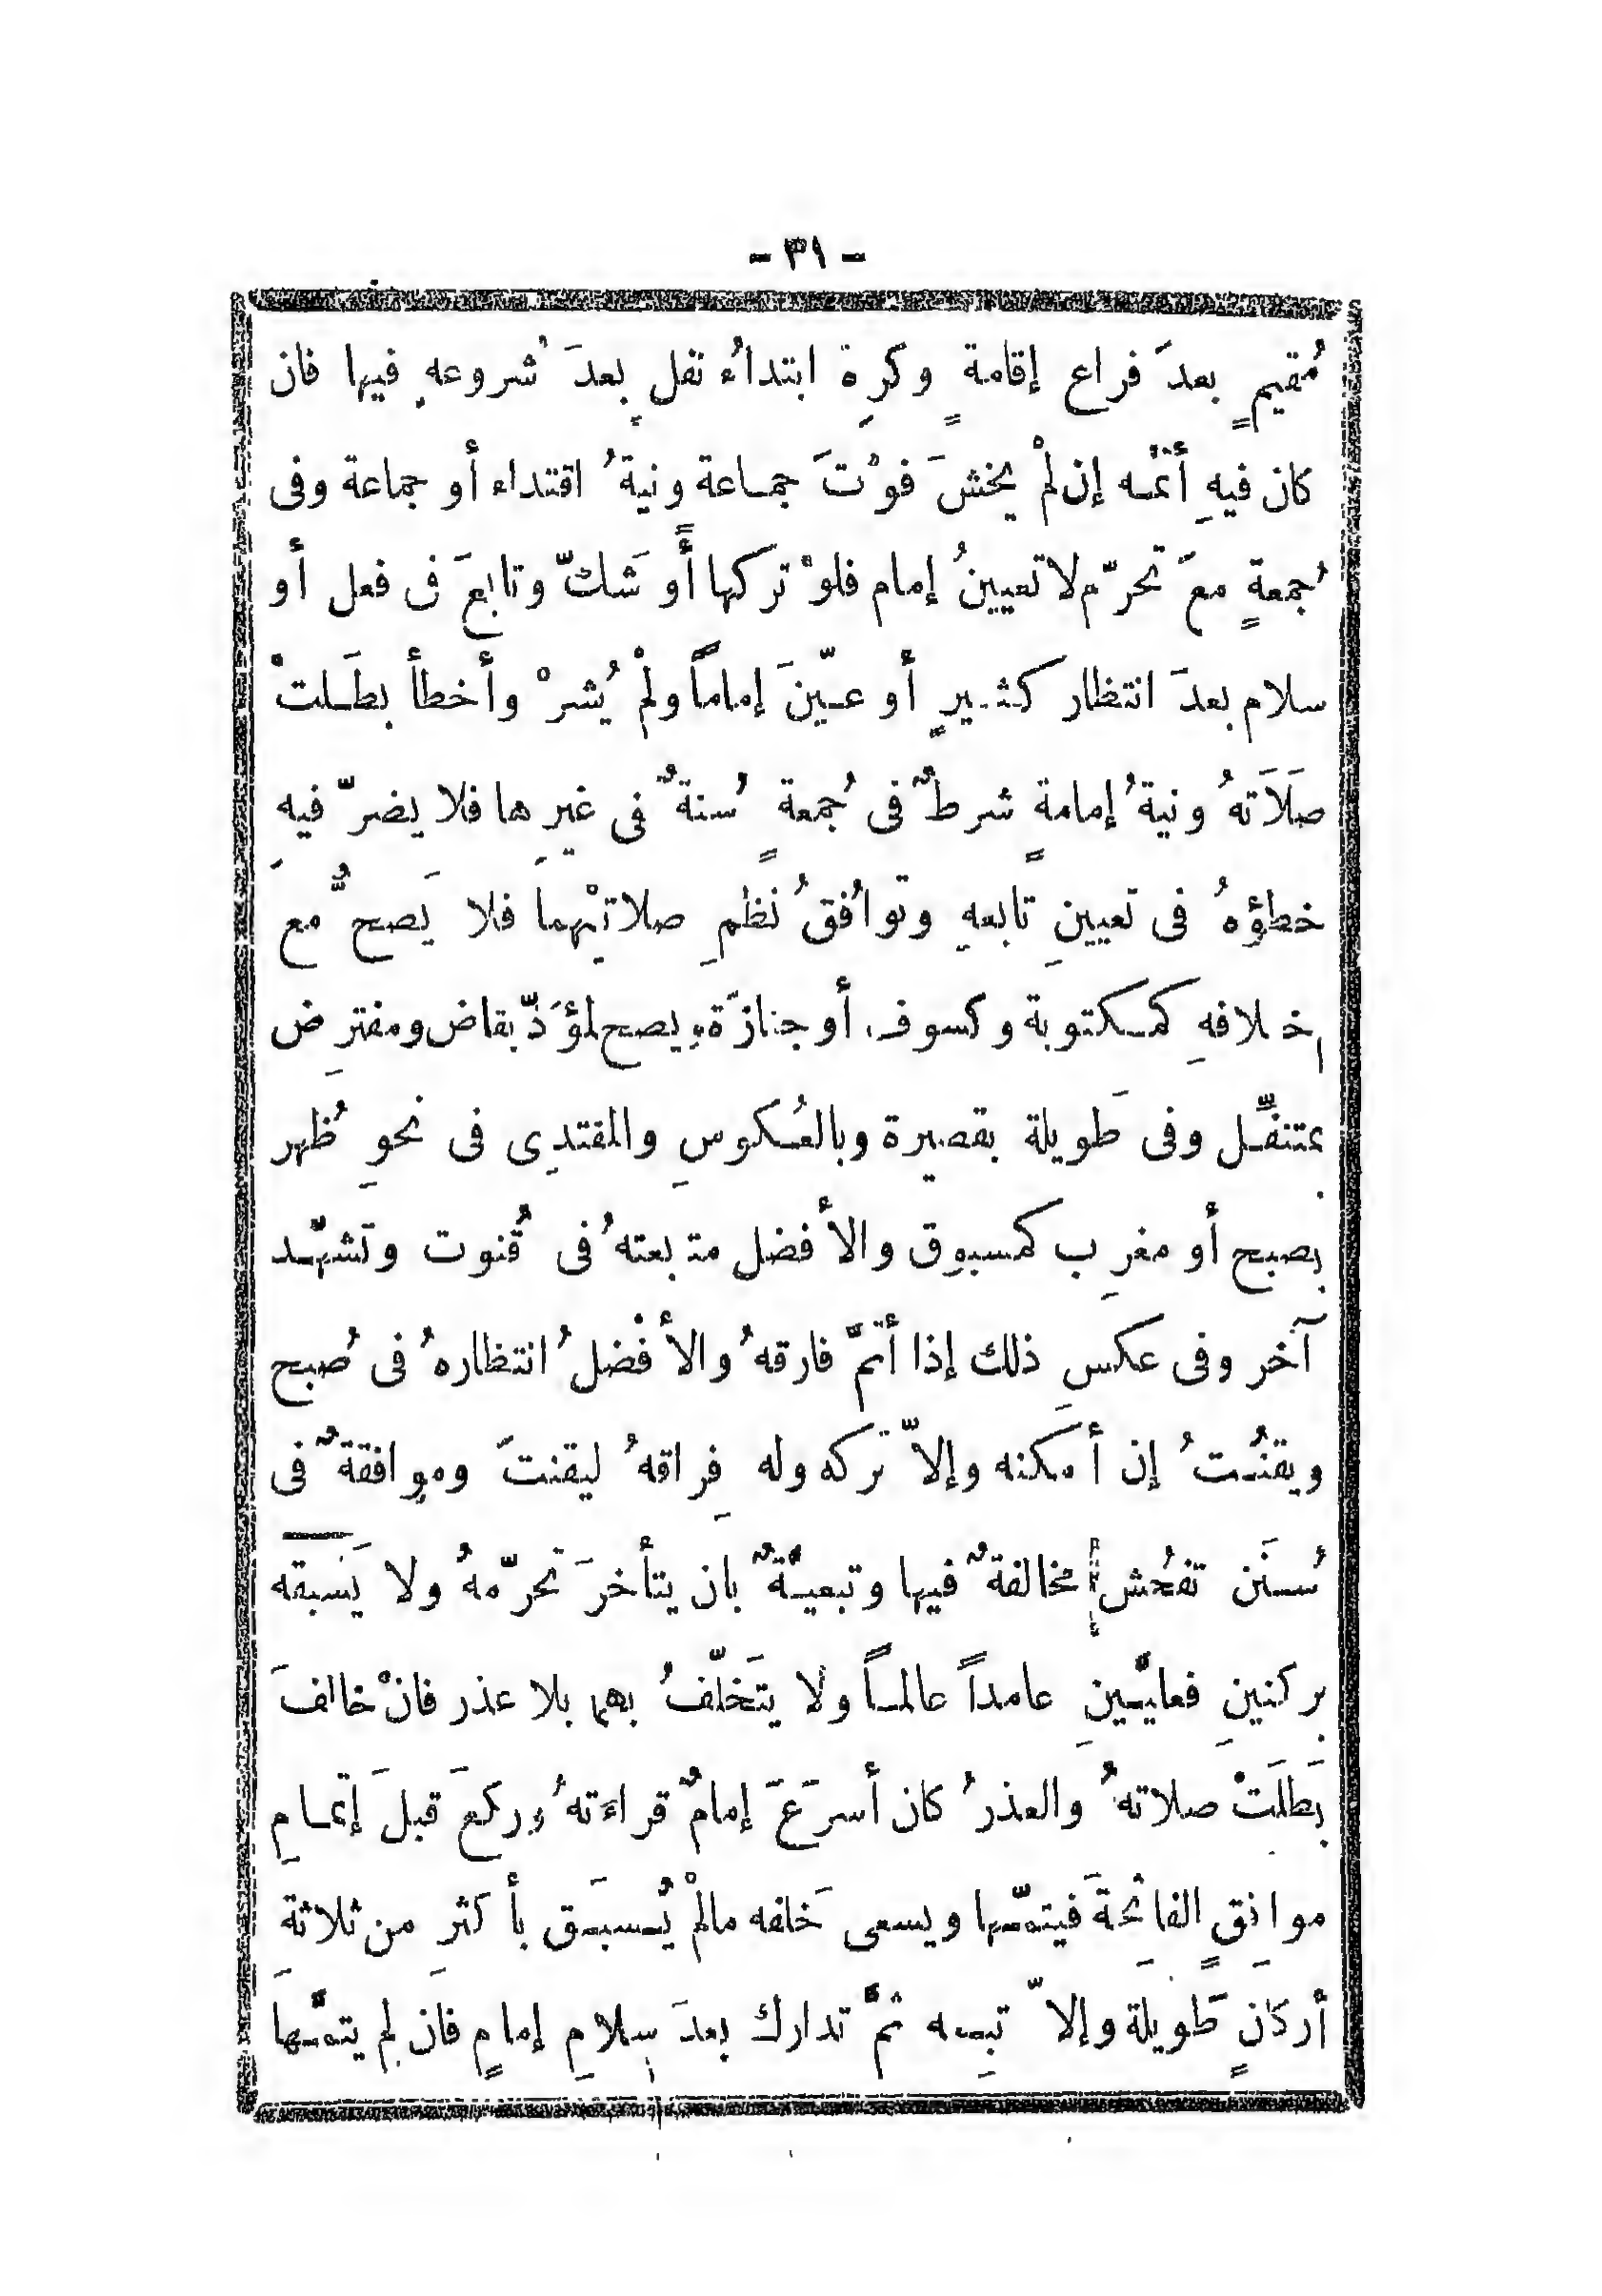 - ٣١ -
مُقيمٍ بعدَ فراع إقامةٍ وكرِهَ ابتداءُ نفلٍ بعدَ شروعهِ فيها فان
كان فيهِ أتمَّه إن لمْ يخشَ فوْتَ جماعة ونيةُ اقتداء أو جماعة وفى
جُمعةٍ معَ تحرّم لا تعيينُ إمام فلوْ تركها أو شَكّ وتابعَ فى فعل أو
سلام بعدَ انتظار كثيرٍ أو عيّنَ إماماً ولمْ يُشرْ وأخطأ بطَلتْ
صَلَاتهُ ونيةُ إمامةٍ شرطٌ فى جُمعةٍ سُنةٌ فى غيرِها فلا يضرّ فيهِ
خطؤهُ فى تعيينِ تابعهِ وتوافُقُ نَظمِ صلاتيْهما فلا يَصحُّ مع
اِخلافهِ كمكتوبة وكسوف أو جنازَة ويصح لمؤَدّ بقاض ومفترِض
بمتنفِّل وفى طَويلة بقصيرة وبالعُكوسِ والمقتدِى فى نحوِ ظُهر
بصبح أو مغرِب كمسبوق والأفضل متابعتهُ فى قُنوت وتشهّد
آخَر وفى عكسِ ذلك إذا أتمَّ فارقهُ والأفْضلُ انتظارهُ فى صُبح
ويقنُتُ إن أمكنه وإلاّ تركه وله فِراقهُ ليقنتَ وموافقةٌ فى
سُنَن تفحُش مخالفةٌ فيها وتبعيّةٌ بان يتأخرَ تحرّمهُ ولا يَسَبقه
بركنينِ فعليّينِ عامداً عالماً ولا يتَخلّفُ بهما بلا عذر فانْ خالفَ
بَطَلَتْ صلاتهُ والعذرُ كان أسرَعَ إمامٌ قراءَتهُ وركعَ قبلَ إتمامِ
موافِقٍ الفاتحِةَ فيتمّها ويسعى خَلفه مالمْ يُسبَق بأكثرِ من ثلاثةِ
أركانٍ طَويلة وإلاّ تبِعه ثمَّ تدارك بعدَ سلامِ إمامٍ فان لم يتمَّها